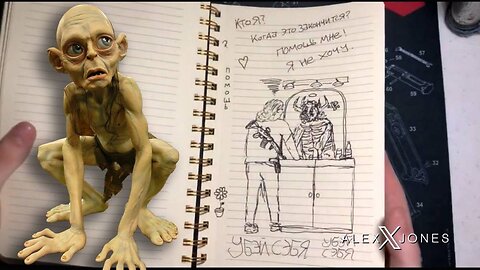 Кто Я?
Когда это закончится?
Помощь мне!
Я не хочу.
? помощь
УБЭЛ СЭБЯ
УБЭЛ
СЭБЯ
ALEX X JONES